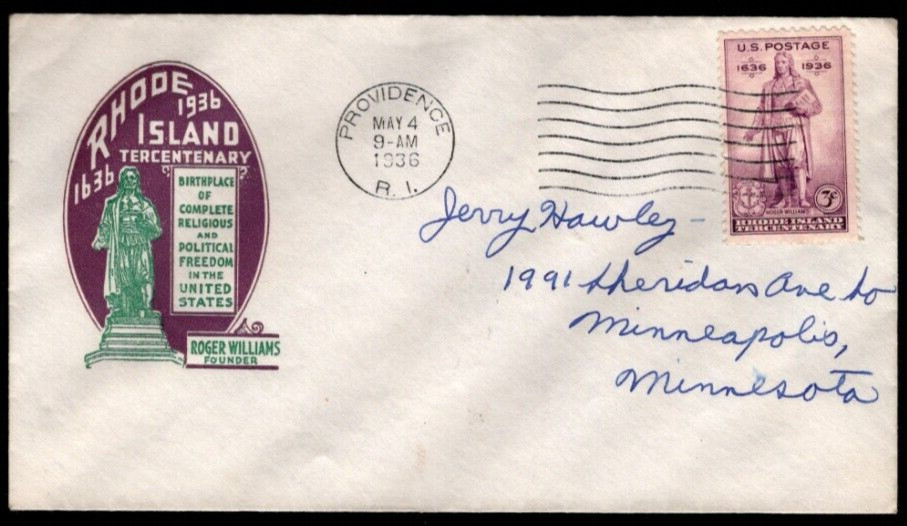 RHODE
1936
ISLAND
TERCENTENARY
1636
BIRTHPLACE
OF
COMPLETE
RELIGIOUS
AND
POLITICAL
FREEDOM
IN THE
UNITED
STATES
ROGER WILLIAMS
FOUNDER
PROVIDENCE
MAY 4
9-AM
1936
R. I.
U.S. POSTAGE
1636 1936
ROGER WILLIAMS
3¢
RHODE ISLAND
TERCENTENARY
Jerry Hawley -
1991 Sheridan Ave So
Minneapolis,
Minnesota